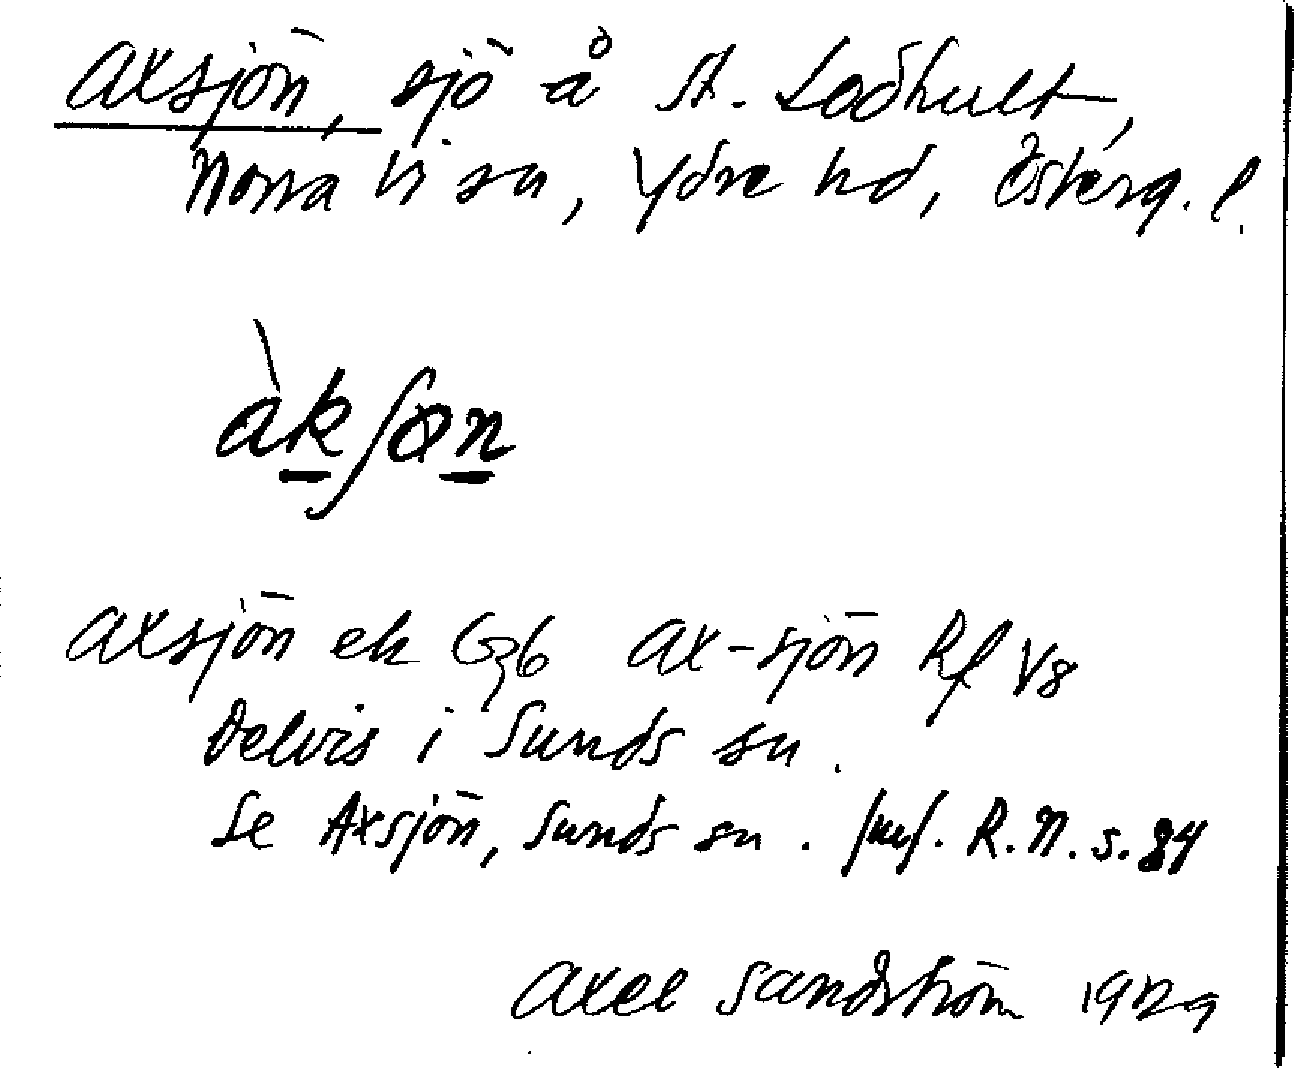 Axsjön, sjö å St. Ladhult,
Norra Vi sn, Ydre hd, Österg. l.
àkʃøn
Axsjön ek G36 Ax-sjön Rf V8
Delvis i Sunds sn.
Se Axsjön, Sunds sn. R.N. s. 84
Axel Sandström 1929